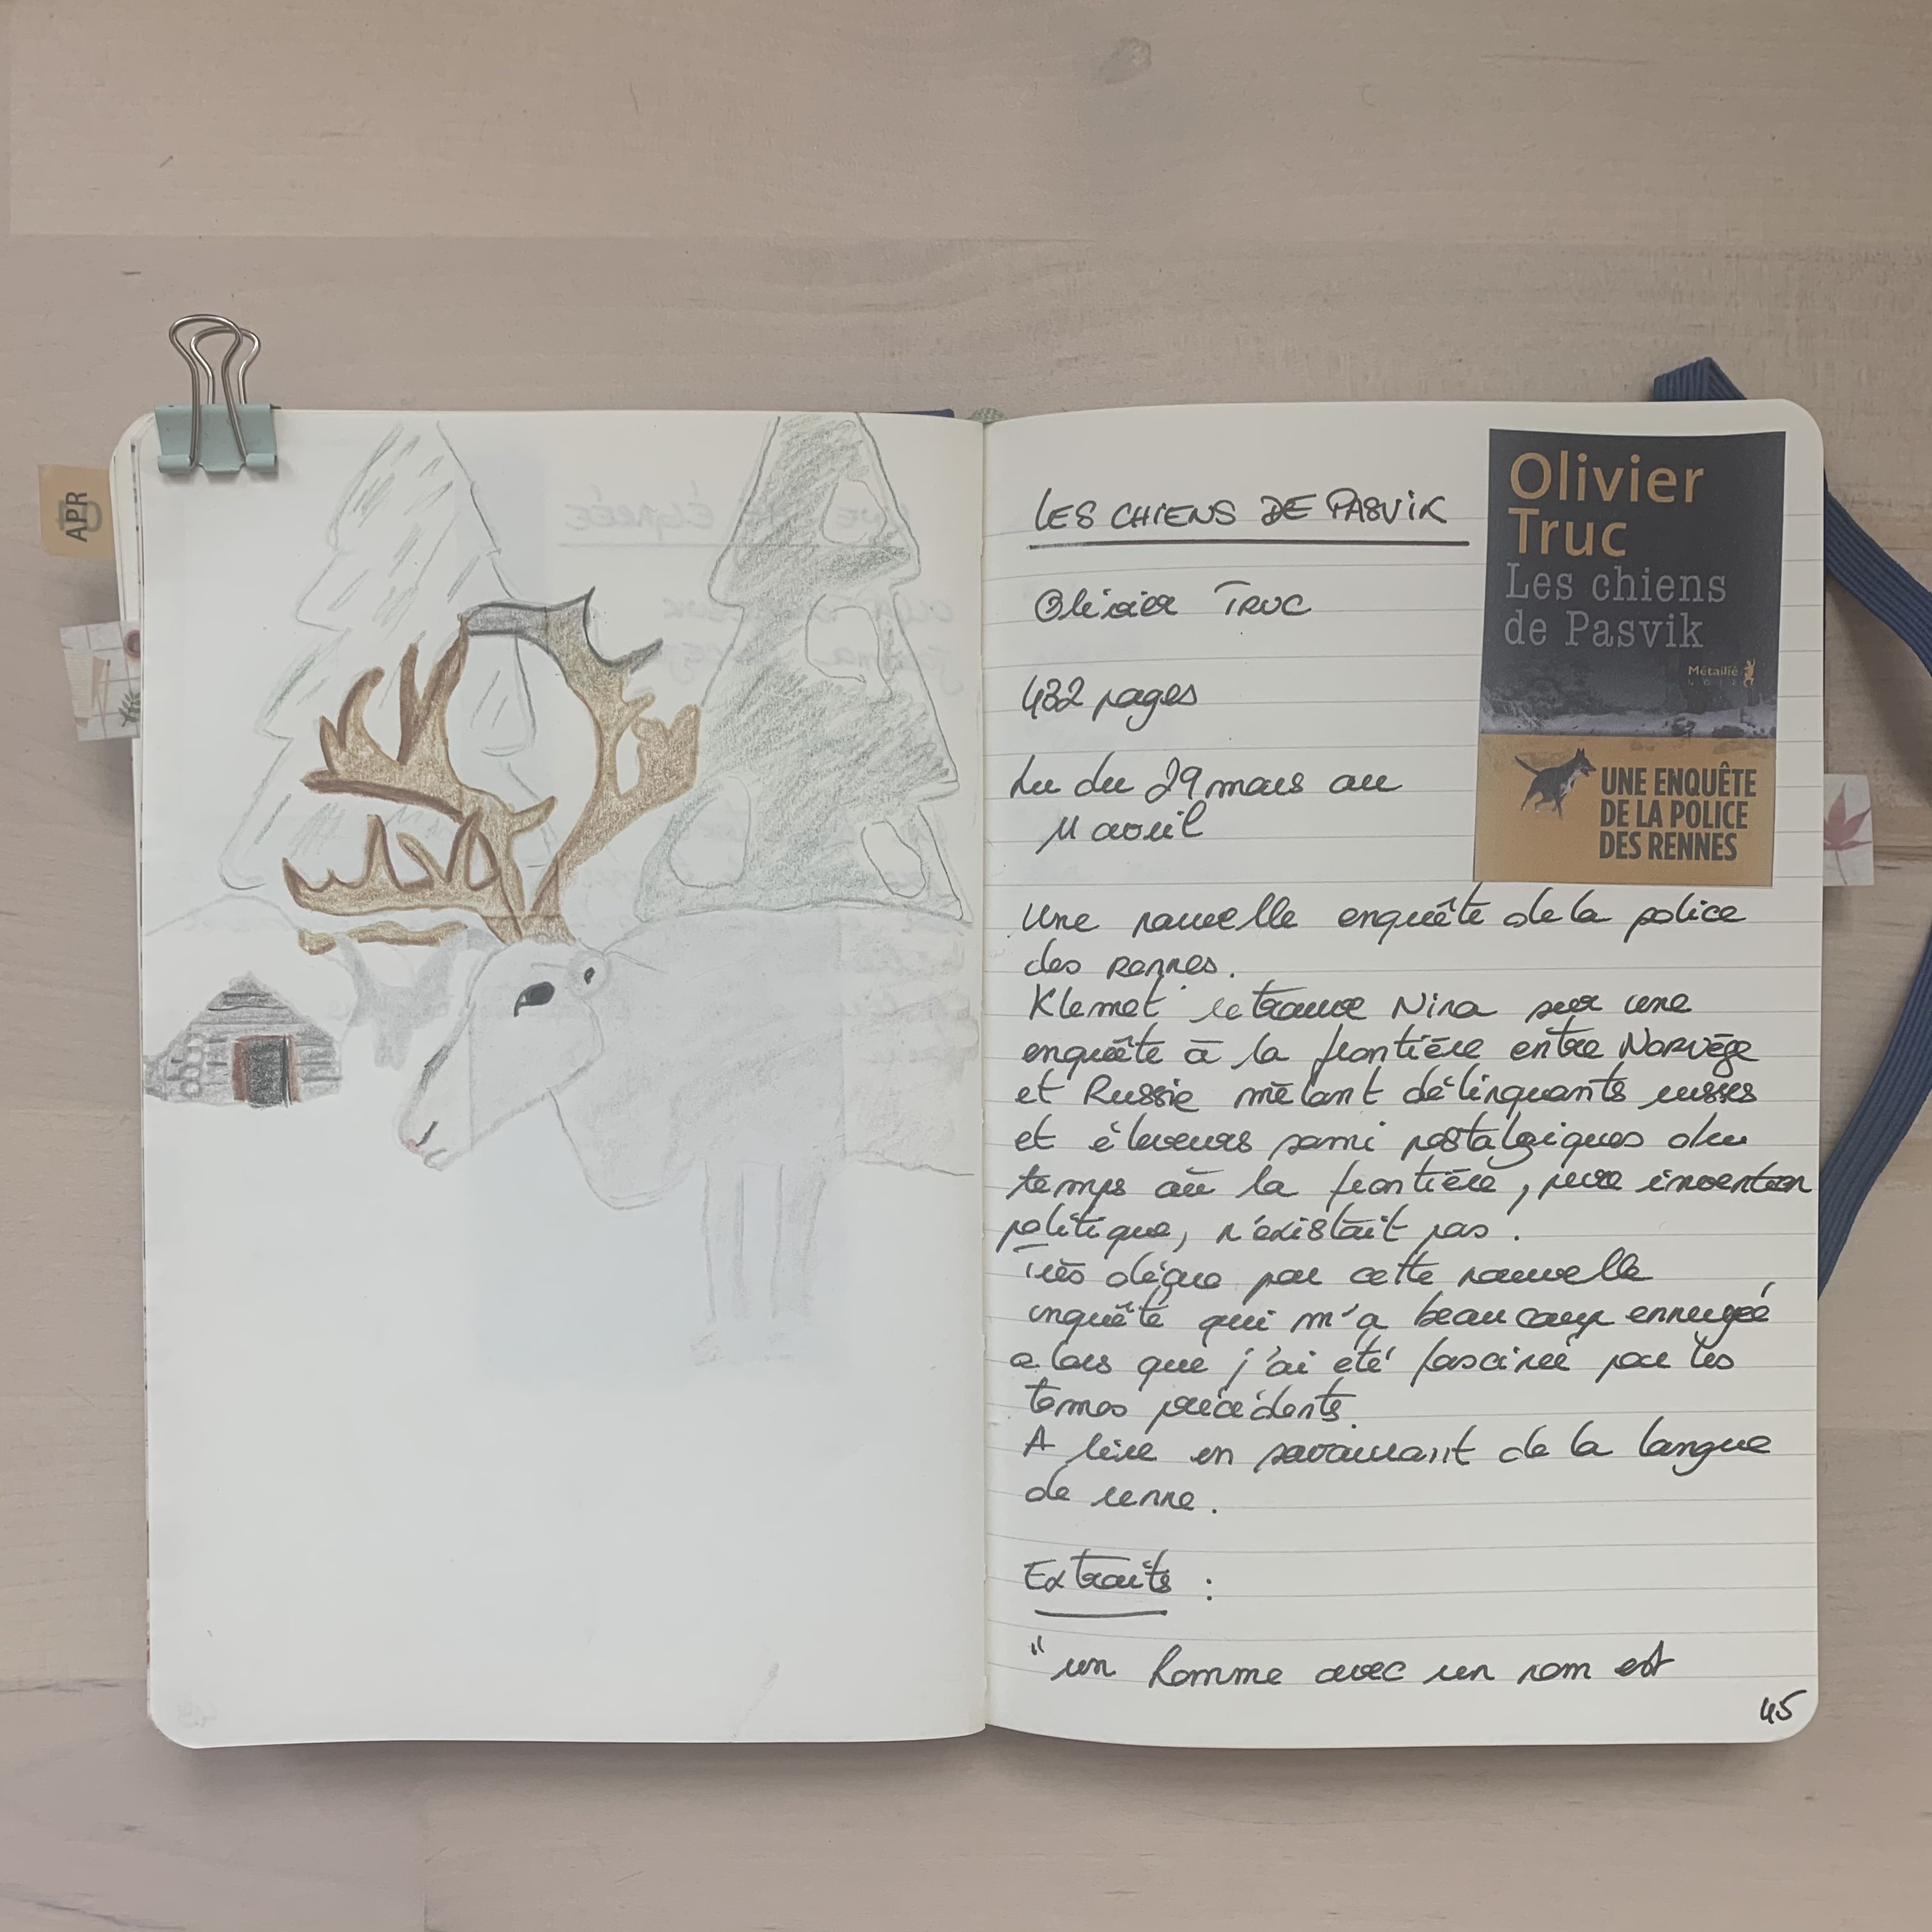 APR
LES CHIENS DE PASVIK
Olivier TRUC
432 pages
Lu du 29 mars au
11 avril
Olivier
Truc
Les chiens
de Pasvik
Métailié
NOIR
UNE ENQUÊTE
DE LA POLICE
DES RENNES
Une nouvelle enquête de la police
des rennes.
Klemet retrouve Nina sur une
enquête à la frontière entre Norvège
et Russie mêlant délinquants russes
et éleveurs sami nostalgiques du
temps où la frontière, pure invention
politique, n'existait pas.
Très déçue par cette nouvelle
enquête qui m'a beaucoup ennuyée
alors que j'ai été fascinée par les
tomes précédents.
A lire en savourant de la langue
de renne.
Extraits :
"un homme avec un nom est
45